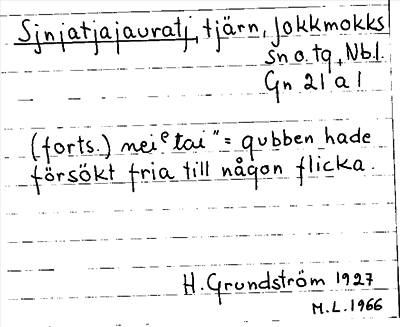 Sjnjatjajauratj, tjärn, Jokkmokks
sn o. tg, Nbl.
Gn 21 a 1
(forts.) neiᵉtai" = gubben hade
försökt fria till någon flicka.
H. Grundström 1927
M.L. 1966